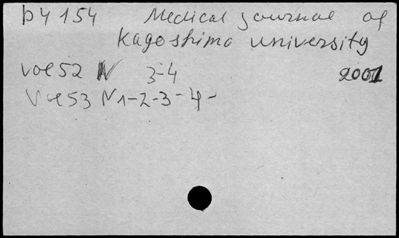 p4154 Medical journal of
Kagoshima University
vol52 N 3-4 2001
Vol53 N1-2-3-4-